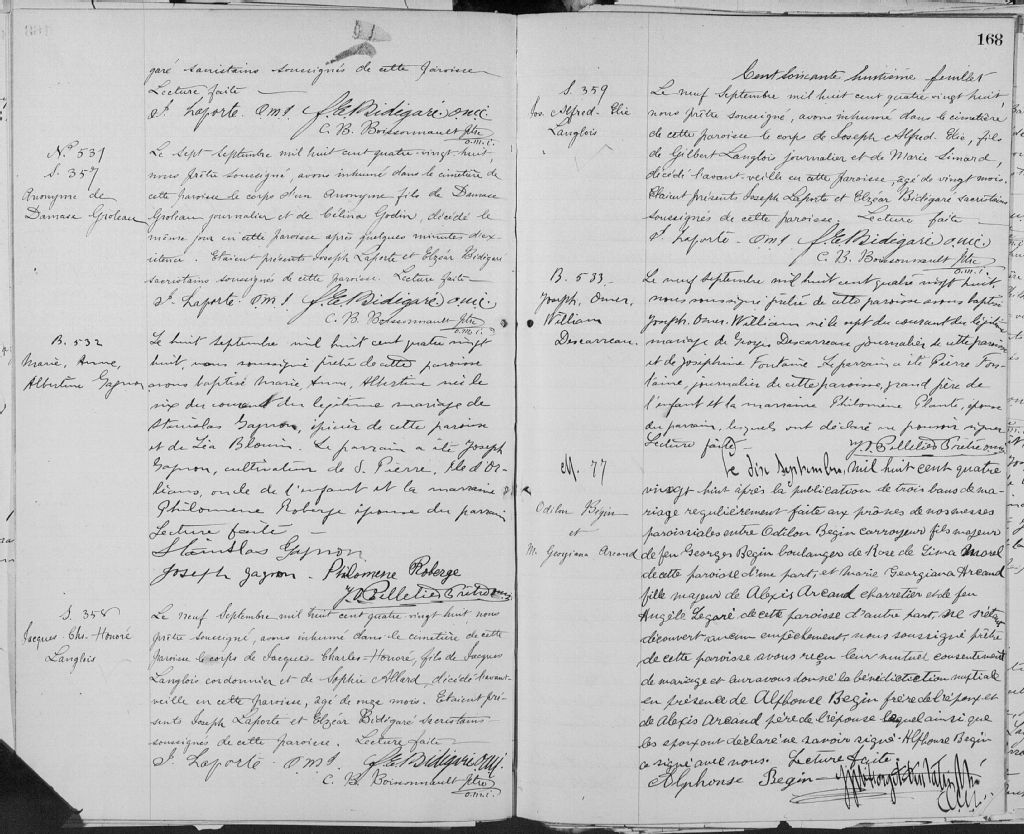 garé sacristains soussignés de cette paroisse
Lecture faite
J. Laporte. O.M.I. J. E. Bidégaré o.m.i.
C. B. Boissonnault Ptre
o.m.i.
No 531
S. 357
Anonyme de
Damase Groleau
Le sept septembre mil huit cent quatre vingt huit,
nous prêtre soussigné, avons inhumé dans le cimetière de
cette paroisse le corps d'un Anonyme fils de Damase
Groleau journalier et de Célina Godin, décédé le
même jour en cette paroisse après quelques minutes d'ex-
istence. Etaient présents Joseph Laporte et Elzéar Bidégaré
sacristains soussignés de cette paroisse. Lecture faite
J. Laporte. O.M.I. J. E. Bidégaré o.m.i.
C. B. Boissonnault Ptre
o.m.i.
B. 532
Marie, Anne,
Albertine Gagnon
Le huit septembre mil huit cent quatre vingt
huit, nous soussigné prêtre de cette paroisse
avons baptisé Marie, Anne, Albertine née le
six du courant du légitime mariage de
Stanislas Gagnon, épicier de cette paroisse
et de Léa Blouin. Le parrain a été Joseph
Gagnon, cultivateur de S. Pierre, Ile d'Or-
léans, oncle de l'enfant et la marraine
Philomène Roberge épouse du parrain
Lecture faite
Stanislas Gagnon
Joseph Gagnon. Philomene Roberge
Pelletier Prêtre o.m.i.
S. 358
Jacques Chs. Honoré
Langlois
Le neuf Septembre mil huit cent quatre vingt huit, nous
prêtre soussigné, avons inhumé dans le cimetière de cette
paroisse le corps de Jacques-Charles-Honoré, fils de Jacques
Langlois cordonnier et de Sophie Allard, décédé l'avant-
veille en cette paroisse, agé de onze mois. Etaient pré-
sents Joseph Laporte et Elzéar Bidégaré sacristains
soussignés de cette paroisse. Lecture faite
J. Laporte. O.M.I. J. E. Bidégaré o.m.i.
C. B. Boissonnault Ptre
o.m.i.
168
Cent soixante huitième feuillet
S. 359
Jos. Alfred. Elie
Langlois
Le neuf Septembre mil huit cent quatre vingt huit,
nous prêtre soussigné, avons inhumé dans le cimetière
de cette paroisse le corps de Joseph Alfred Elie, fils
de Gilbert Langlois journalier et de Marie Simard,
décédé l'avant-veille en cette paroisse, agé de vingt mois.
Etaient présents Joseph Laporte et Elzéar Bidégaré sacristains
soussignés de cette paroisse. Lecture faite
J. Laporte. O.M.I. J. E. Bidégaré o.m.i.
C. B. Boissonnault Ptre
o.m.i.
B. 533
Joseph, Omer,
William
Descarreau.
Le neuf septembre mil huit cent quatre vingt huit
nous soussigné prêtre de cette paroisse avons baptisé
Joseph. Omer. William né le sept du courant du légitime
mariage de Georges Descarreau journalier de cette paroisse
et de Joséphine Fontaine. Le parrain a été Pierre Fon-
taine, journalier de cette paroisse, grand père de
l'enfant et la marraine Philomène Plante, épouse
du parrain, lesquels ont déclaré ne pouvoir signer
Lecture faite
Pelletier Prêtre o.m.i.
M. 77
Odilon Bégin
et
M. Georgiana Arcand
Le dix septembre, mil huit cent quatre
vingt huit après la publication de trois bans de ma-
riage regulièrement faite aux prônes de nos messes
paroissiales entre Odilon Begin carroyeur fils majeur
de feu Georges Begin boulanger de Rose de Lima Morel
de cette paroisse d'une part, et Marie Georgiana Arcand
fille majeur de Alexis Arcand charretier et de feu
Angèle Legaré de cette paroisse d'autre part, ne s'étant
découvert aucun empêchement, nous soussigné prêtre
de cette paroisse avons reçu leur mutuel consentement
de mariage et leur avons donné la bénédiction nuptiale
en présence de Alphonse Begin frère de l'époux et
de Alexis Arcand père de l'épouse lequel ainsi que
les époux ont déclaré ne savoir signé. Alphonse Begin
a signé avec nous. Lecture faite.
Alphonse Begin